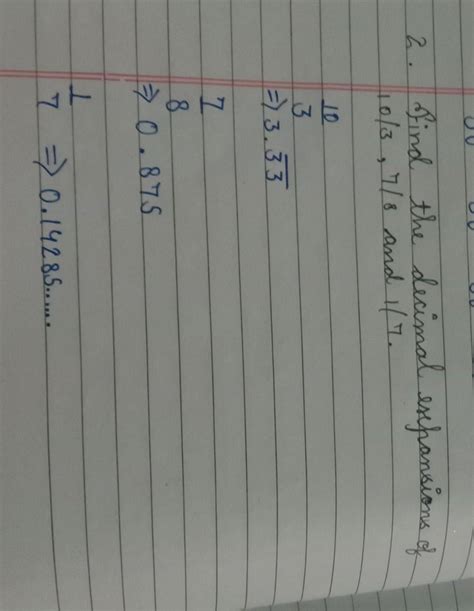 2. Find the decimal expansions of
10/3, 7/8 and 1/7.
10
3
⇒ 3.3̅3̅
7
8
⇒ 0.875
1
7 ⇒ 0.14285......